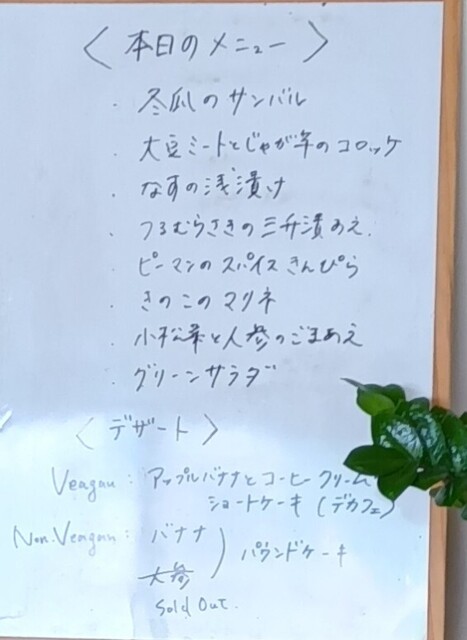 〈 本日のメニュー 〉
・ 冬瓜のサンバル
・ 大豆ミートとじゃが芋のコロッケ
・ なすの浅漬け
・ つるむらさきの三升漬あえ
・ ピーマンのスパイスきんぴら
・ きのこのマリネ
・ 小松菜と人参のごまあえ
・ グリーンサラダ
〈 デザート 〉
Veagan: アップルバナナとコーヒークリーム
ショートケーキ (デカフェ)
Non.Veagan: バナナ ) パウンドケーキ
人参
Sold Out.